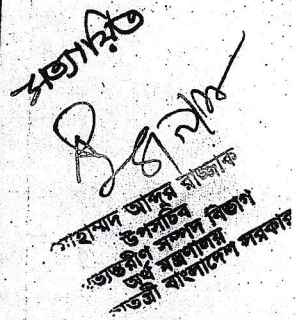 সত্যায়িত
মোহাম্মদ আব্দুর রাজ্জাক
উপসচিব
অভ্যন্তরীণ সম্পদ বিভাগ
অর্থ মন্ত্রণালয়
বাংলাদেশ সরকার